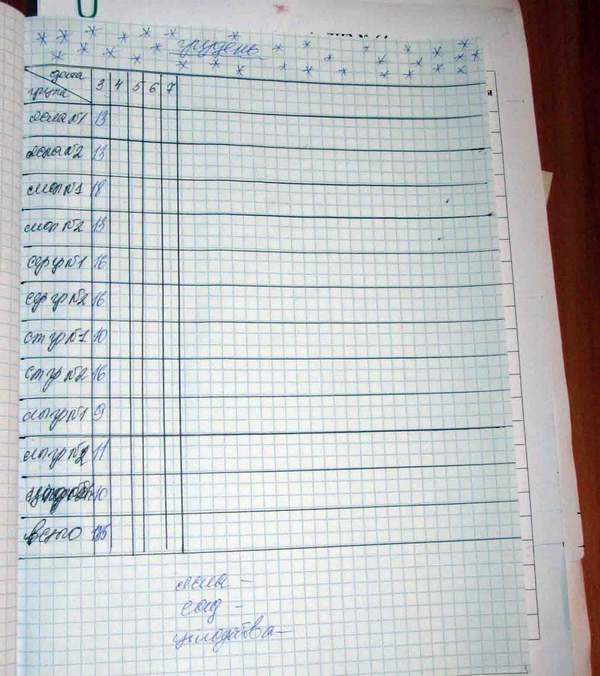 грудень
дата
група 3 4 5 6 7
ясла №1 13
ясла №2 13
мол №1 18
мол №2 13
сер гр №1 16
сер гр №2 16
ст гр №1 10
ст гр №2 16
лог гр №1 9
лог гр №2 11
10
всього
ясла –
сад –
цілодобова –